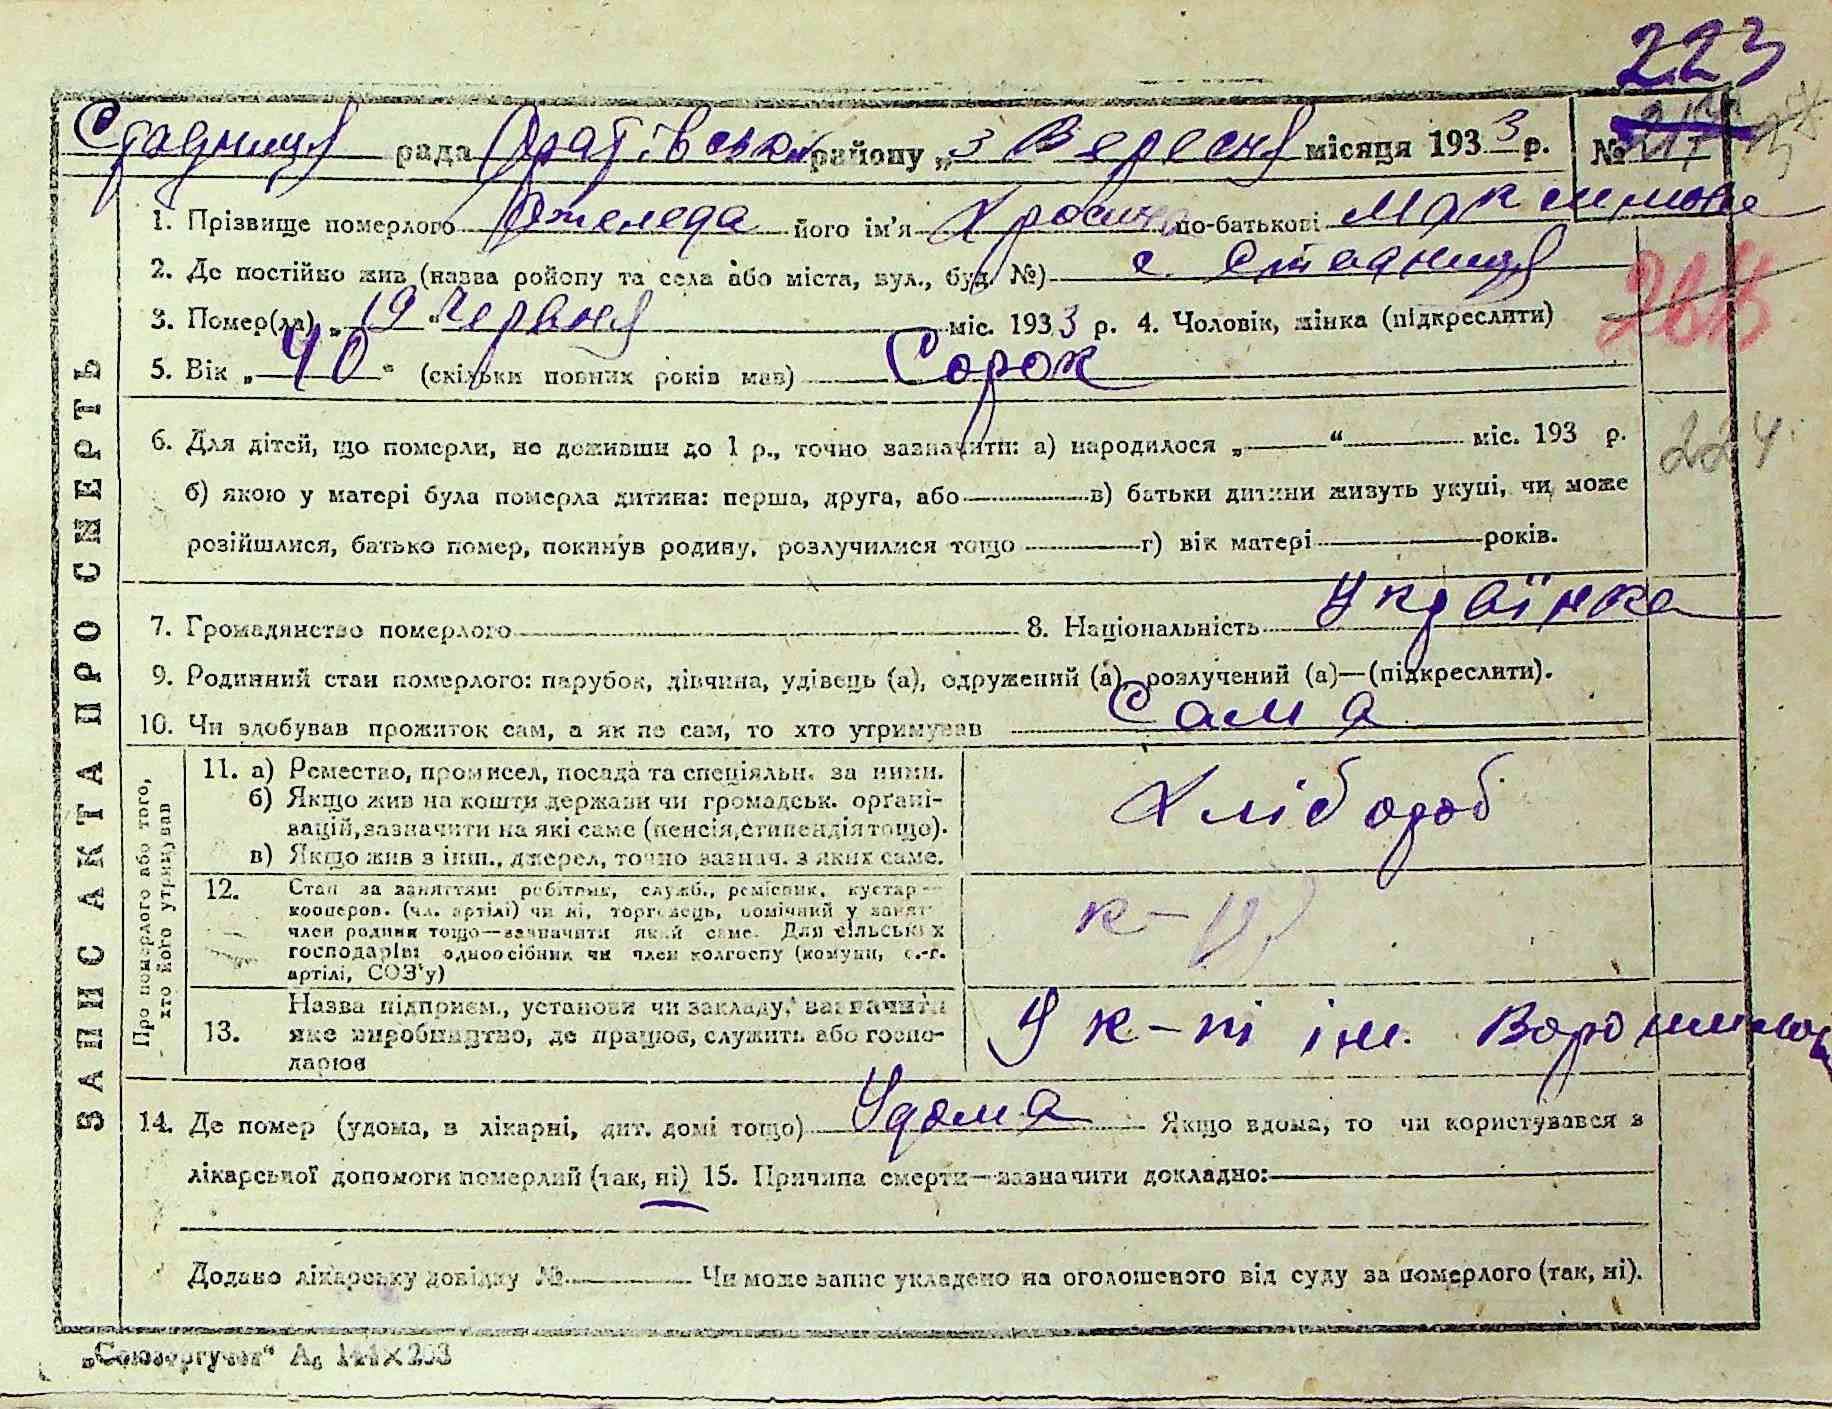 223
Стадниця рада Оратівськ району „3 Вересня місяця 1933 р. №
1. Прізвище померлого Джеледа його ім'я по-батькові Максимовна
2. Де постійно жив (назва ройону та села або міста, вул., буд. №) с. Стадниця
3. Помер(ла) „19 “ Червня міс. 1933 р. 4. Чоловік, жінка (підкреслити)
5. Вік „40“ (скільки повних років мав) Сорок
268
6. Для дітей, що померли, не доживши до 1 р., точно зазначити: а) народилося „ “ міс. 193 р.
224
б) якою у матері була померла дитина: перша, друга, або в) батьки дитини живуть укупі, чи може
розійшлися, батько помер, покинув родину, розлучилися тощо г) вік матері років.
7. Громадянство померлого 8. Національність Українка
9. Родинний стан померлого: парубок, дівчина, удівець (а), одружений (а), розлучений (а)—(підкреслити).
10. Чи здобував прожиток сам, а як не сам, то хто утримував Сама
ЗАПИС АКТА ПРО СМЕРТЬ
Про померлого або того,
хто його утримував
11. а) Ремество, промисел, посада та спеціяльн. за ними.
б) Якщо жив на кошти держави чи громадськ. орґані-
зацій, зазначити на які саме (пенсія, стипендія тощо).
в) Якщо жив з інш., джерел, точно зазнач. з яких саме.
Хлібороб
12. Стан за заняттям: робітник, служб., ремісник, кустар—
кооперов. (чл. артілі) чи ні, торговець, помічний у занят
член родини тощо—зазначити який саме. Для сільських
господарів: одноосібник чи член колгоспу (комуни, с.-г.
артілі, СОЗ'у)
13. Назва підприєм., установи чи закладу, зазначити
яке виробництво, де працює, служить або госпо-
дарює
У к-пі ім. Ворошилова
14. Де помер (удома, в лікарні, дит. домі тощо) Удома Якщо вдома, то чи користувався з
лікарської допомоги померлий (так, ні) 15. Причина смерти—зазначити докладно:
Додано лікарську довідку № Чи може запис укладено на оголошеного від суду за померлого (так, ні).
„Союзоргучет“ А₆ 144×203